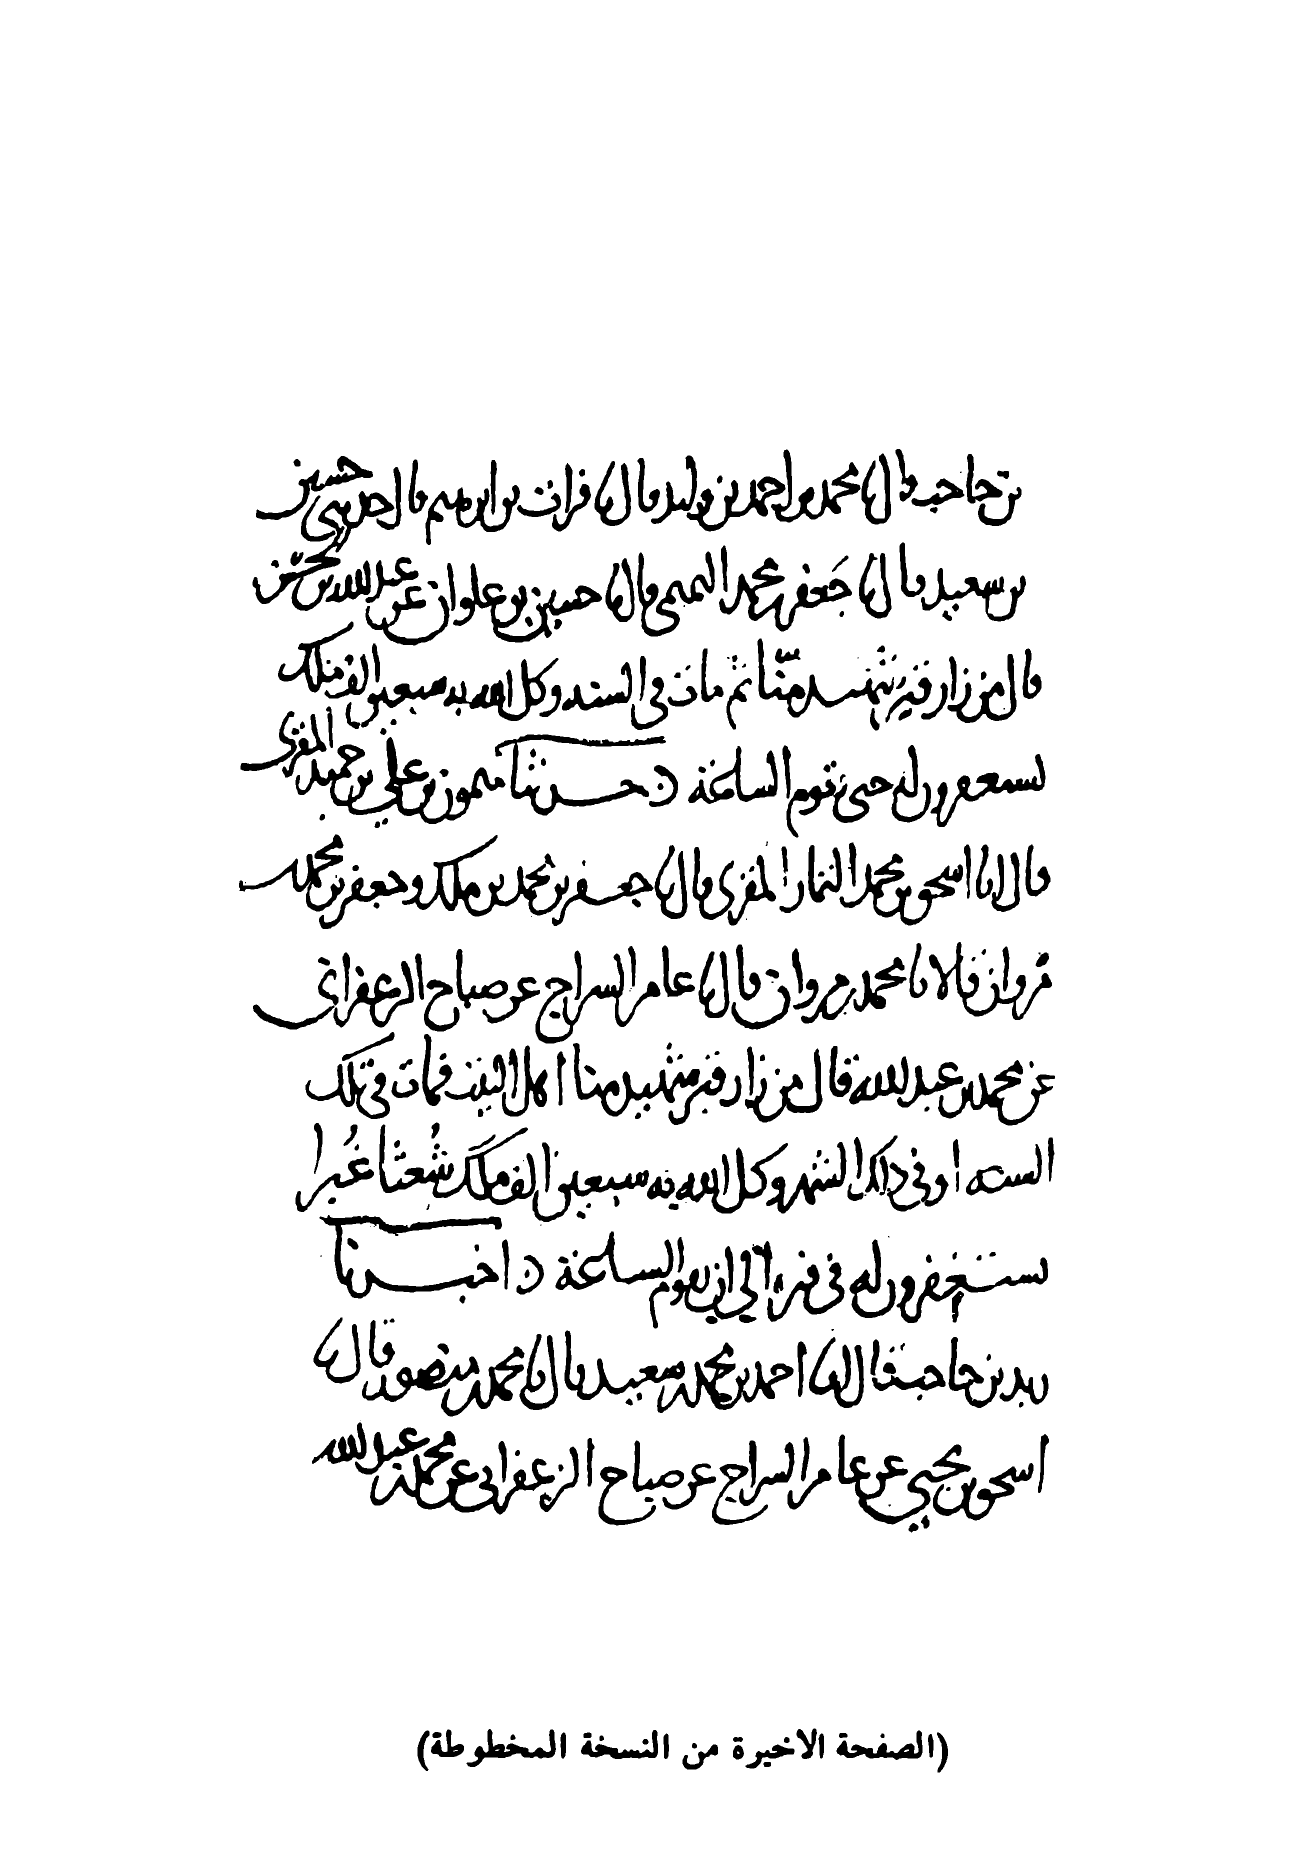 بن حاجب قال نا محمد بن احمد بن وليد قال نا فرات بن ابرهيم قال حدثني حسين
بن سعيد قال نا جعفر بن محمد قال نا حسين بن علوان عن عبدالله بن حسن
قال من زار قبر شهيد منّا ثم مات في السنه وكل الله به سبعين الف ملك
يستغفرون له حتى تقوم الساعة ن حدثنا ميمون بن علي بن حميد المقرى
قال انا اسحق بن محمد التمار المقرى قال نا جعفر بن محمد بن ملك وجعفر بن محمد بن
مروان قالا نا محمد بن مروان قال نا عامر السراج عن صباح الزعفراني
عن محمد بن عبدالله قال من زار قبر شهيد منا اهل البيت فمات في تلك
السنه او في ذلك الشهر وكل الله به سبعين الف ملك شُعثًا غُبرا
يستغفرون له في قبره الى ان تقوم الساعة ن اخبرنا
زيد بن حاجب قال نا احمد بن محمد بن سعيد قال نا محمد بن منصور قال نا
اسحق بن يحيي عن عامر السراج عن صباح الزعفراني عن محمد بن عبدالله
(الصفحة الاخيرة من النسخة المخطوطة)